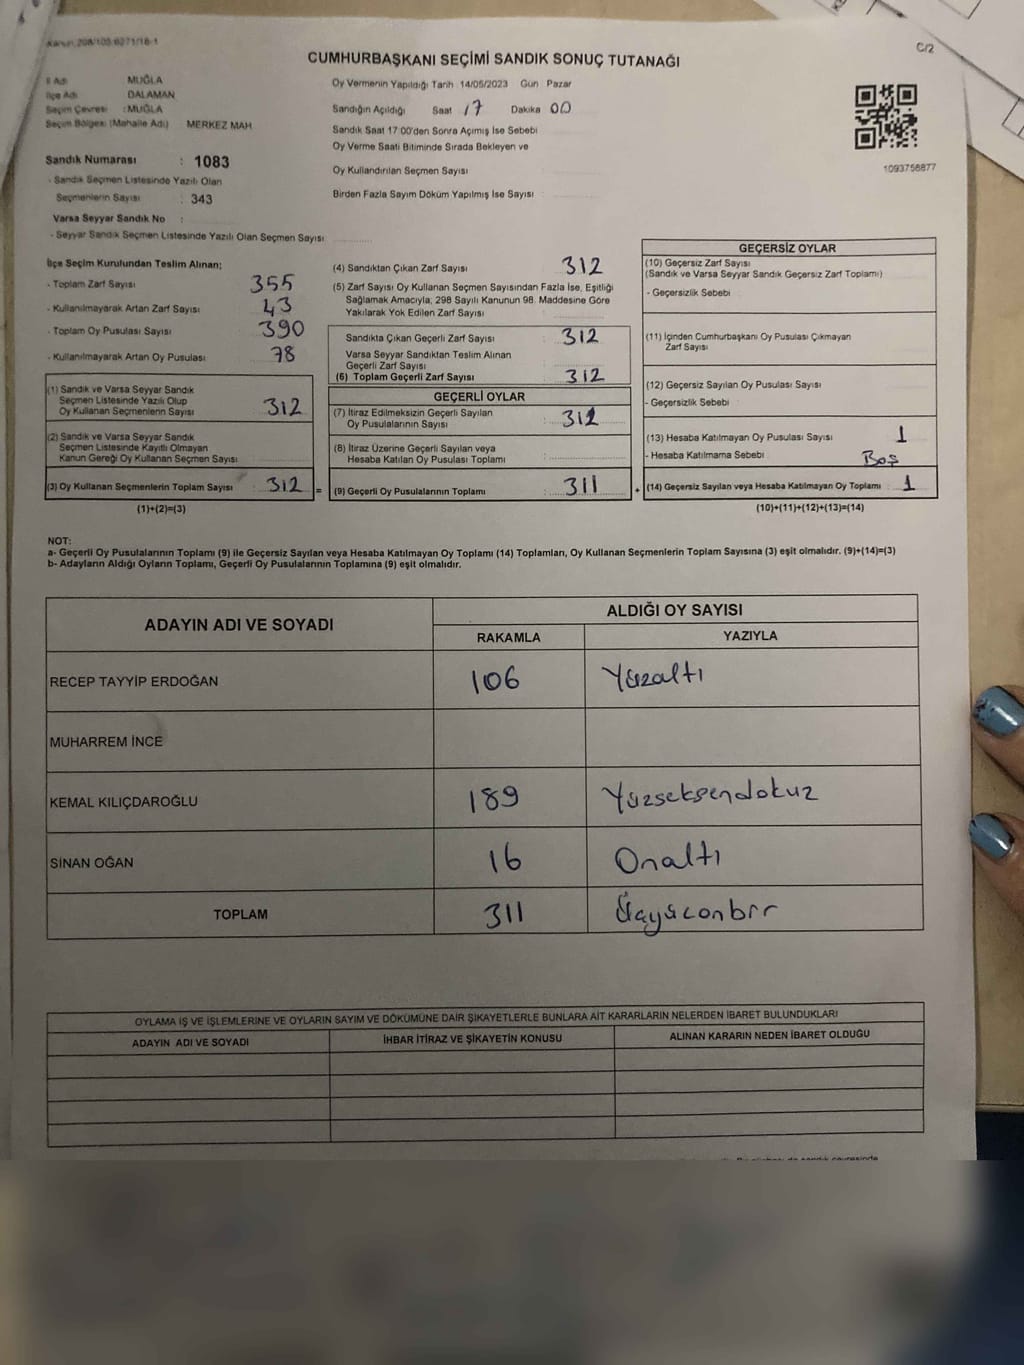 Kanun 298/105 6271/16-1
C/2
CUMHURBAŞKANI SEÇİMİ SANDIK SONUÇ TUTANAĞI
İl Adı : MUĞLA
İlçe Adı : DALAMAN
Seçim Çevresi : MUĞLA
Seçim Bölgesi (Mahalle Adı) MERKEZ MAH
Sandık Numarası : 1083
- Sandık Seçmen Listesinde Yazılı Olan
Seçmenlerin Sayısı : 343
Varsa Seyyar Sandık No :
- Seyyar Sandık Seçmen Listesinde Yazılı Olan Seçmen Sayısı
Oy Vermenin Yapıldığı Tarih :14/05/2023 Gün Pazar
Sandığın Açıldığı Saat 17 Dakika 00
Sandık Saat 17:00'den Sonra Açımış İse Sebebi
Oy Verme Saati Bitiminde Sırada Bekleyen ve
Oy Kullandırılan Seçmen Sayısı
Birden Fazla Sayım Döküm Yapılmış İse Sayısı
1093756877
İlçe Seçim Kurulundan Teslim Alınan;
- Toplam Zarf Sayısı 355
- Kullanılmayarak Artan Zarf Sayısı 43
- Toplam Oy Pusulası Sayısı 390
- Kullanılmayarak Artan Oy Pusulası 78
(1) Sandık ve Varsa Seyyar Sandık
Seçmen Listesinde Yazılı Olup
Oy Kullanan Seçmenlerin Sayısı 312
(2) Sandık ve Varsa Seyyar Sandık
Seçmen Listesinde Kayıtlı Olmayan
Kanun Gereği Oy Kullanan Seçmen Sayısı
(3) Oy Kullanan Seçmenlerin Toplam Sayısı : 312 =
(1)+(2)=(3)
(4) Sandıktan Çıkan Zarf Sayısı 312
(5) Zarf Sayısı Oy Kullanan Seçmen Sayısından Fazla İse, Eşitliği
Sağlamak Amacıyla; 298 Sayılı Kanunun 98. Maddesine Göre
Yakılarak Yok Edilen Zarf Sayısı
Sandıkta Çıkan Geçerli Zarf Sayısı 312
Varsa Seyyar Sandıktan Teslim Alınan
Geçerli Zarf Sayısı
(6) Toplam Geçerli Zarf Sayısı 312
GEÇERLİ OYLAR
(7) İtiraz Edilmeksizin Geçerli Sayılan
Oy Pusulalarının Sayısı : 312
(8) İtiraz Üzerine Geçerli Sayılan veya
Hesaba Katılan Oy Pusulası Toplamı
(9) Geçerli Oy Pusulalarının Toplamı : 311 +
GEÇERSİZ OYLAR
(10) Geçersiz Zarf Sayısı
(Sandık ve Varsa Seyyar Sandık Geçersiz Zarf Toplamı)
- Geçersizlik Sebebi
(11) İçinden Cumhurbaşkanı Oy Pusulası Çıkmayan
Zarf Sayısı
(12) Geçersiz Sayılan Oy Pusulası Sayısı
- Geçersizlik Sebebi
(13) Hesaba Katılmayan Oy Pusulası Sayısı 1
- Hesaba Katılmama Sebebi Boş
(14) Geçersiz Sayılan veya Hesaba Katılmayan Oy Toplamı 1
(10)+(11)+(12)+(13)=(14)
NOT:
a- Geçerli Oy Pusulalarının Toplamı (9) ile Geçersiz Sayılan veya Hesaba Katılmayan Oy Toplamı (14) Toplamları, Oy Kullanan Seçmenlerin Toplam Sayısına (3) eşit olmalıdır. (9)+(14)=(3)
b- Adayların Aldığı Oyların Toplamı, Geçerli Oy Pusulalarının Toplamına (9) eşit olmalıdır.
ADAYIN ADI VE SOYADI ALDIĞI OY SAYISI
RAKAMLA YAZIYLA
RECEP TAYYİP ERDOĞAN 106 Yüzaltı
MUHARREM İNCE
KEMAL KILIÇDAROĞLU 189 Yüzseksendokuz
SİNAN OĞAN 16 Onaltı
TOPLAM 311 Üçyüzonbir
OYLAMA İŞ VE İŞLEMLERİNE VE OYLARIN SAYIM VE DÖKÜMÜNE DAİR ŞİKAYETLERLE BUNLARA AİT KARARLARIN NELERDEN İBARET BULUNDUKLARI
ADAYIN ADI VE SOYADI İHBAR İTİRAZ VE ŞİKAYETİN KONUSU ALINAN KARARIN NEDEN İBARET OLDUĞU